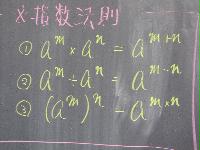 ※指数法則
① a^m × a^n = a^{m+n}
② a^m ÷ a^n = a^{m-n}
③ (a^m)^n = a^{m×n}